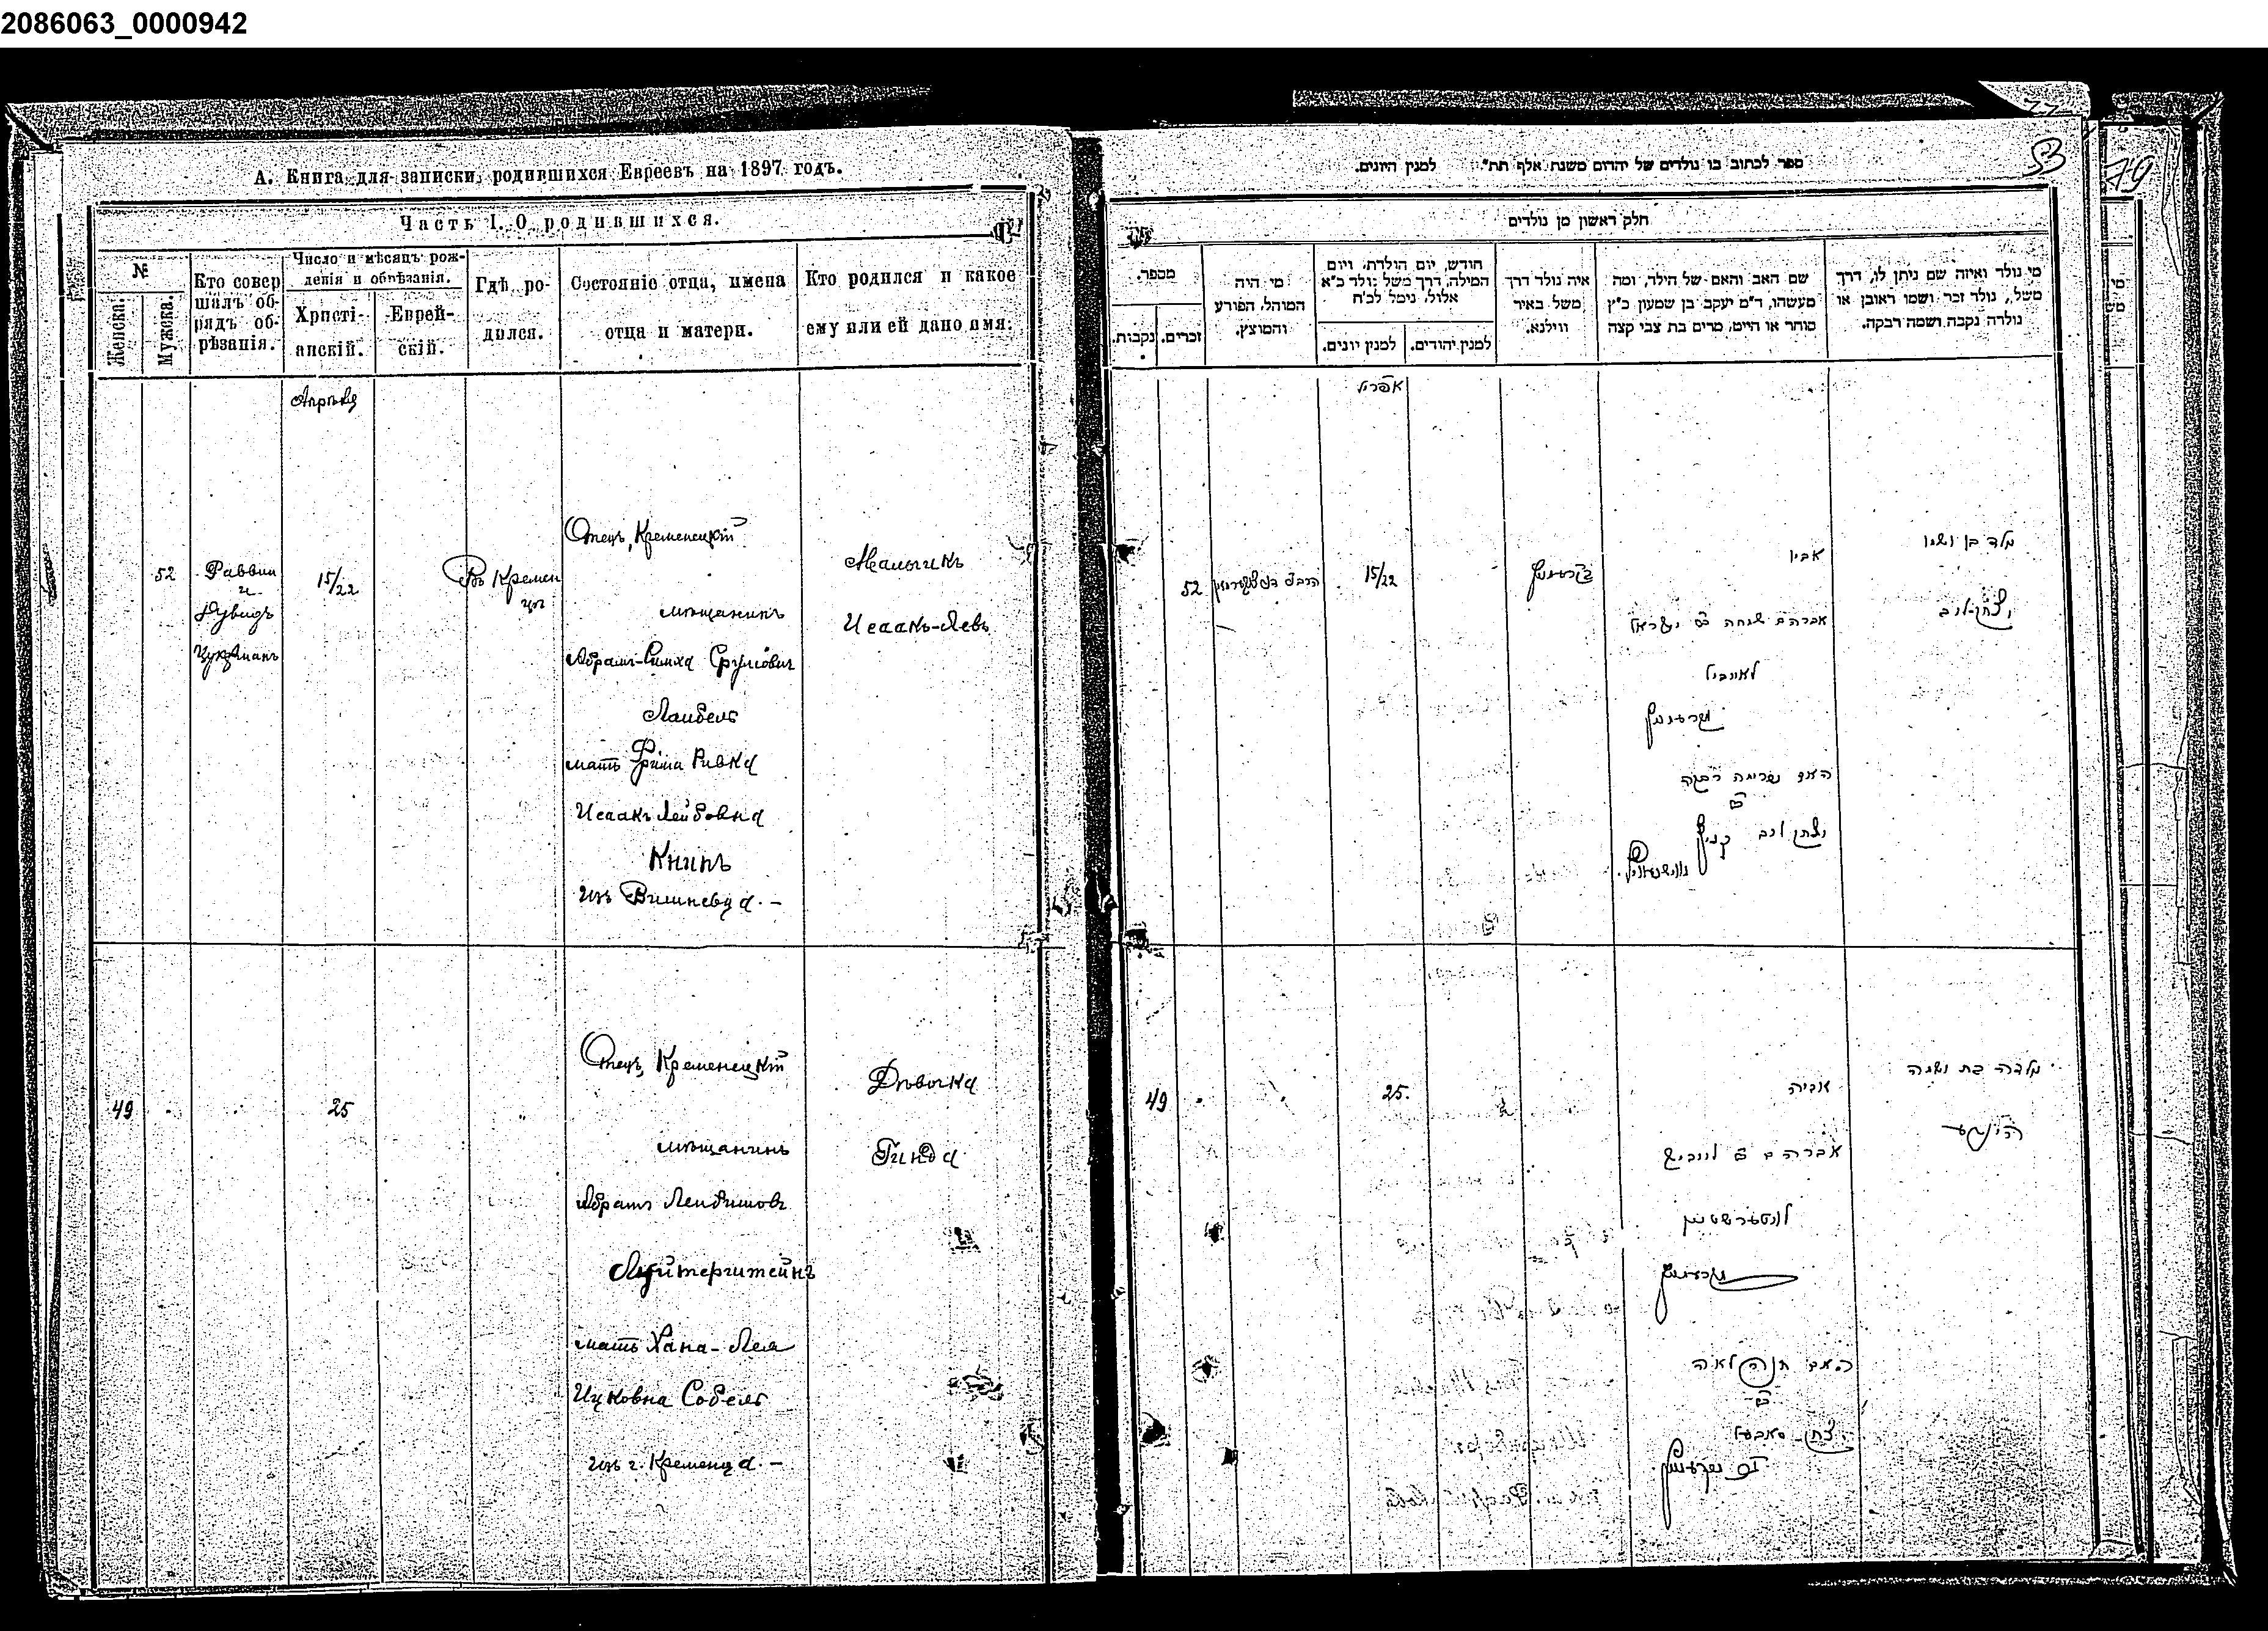 2086063_0000942
А. Книга для записки родившихся Евреевъ на 1897 годъ.
Часть I. О родившихся.
№
Женска.
Мужска.
Кто совер
шалъ об-
рядъ об-
рѣзанія.
Число и мѣсяцъ рож-
денія и обрѣзанія.
Христі-
анскій.
Еврей-
скій.
Гдѣ ро-
дился.
Состояніе отца, имена
отца и матери.
Кто родился и какое
ему или ей дано имя.
Апрѣля
52
Раввин
и
Дувидъ
Цукерманъ
15/22
Въ Кремен
цѣ
Отецъ, Кременецкій
мѣщанинъ
Абрамъ-Симха Срулiовичъ
Лаибель
мать Фрима Ривка
Исаакъ Лейбовна
Книпъ
изъ Вишневца. –
Мальчикъ
Исаакъ-Левъ
49
25
Отецъ, Кременецкій
мѣщанинъ
Абрамъ
мать Хана-Лея
Ицковна Собель
изъ г. Кременца. –
Дѣвочка
Гинда
53
79
ספר לכתוב בו נולדים של יהדום משנת אלף תת״ למנין היונים.
חלק ראשון מן נולדים
מספר.
נקבות.
זכרים.
מי היה
המוהל, הפורע
והמוצץ.
חודש, יום הולדת, ויום
המילה, דרך משל נולד כ״א
אלול, נימל לכ״ח
למנין יונים.
למנין יהודים.
איה נולד דרך
משל באיר
ווילנא.
שם האב והאם של הילד, ומה
מעשהו, ד״מ יעקב בן שמעון כ״ץ
סוחר או חייט, מרים בת צבי קצה
מי נולד ואיזה שם ניתן לו, דרך
משל, נולד זכר ושמו ראובן או
נולדה נקבה ושמה רבקה.
אפריל
52
15/22
אביו
אברהם שמחה ב״ר ישראל
לאייבל
האם פרימה רבקה
יצחק לייב
נולד בן ושמו
יצחק לייב
49
25.
אביה
אברהם
האם חנה לאה
יצחק סאבעל
נולדה בת ושמה
הינדע